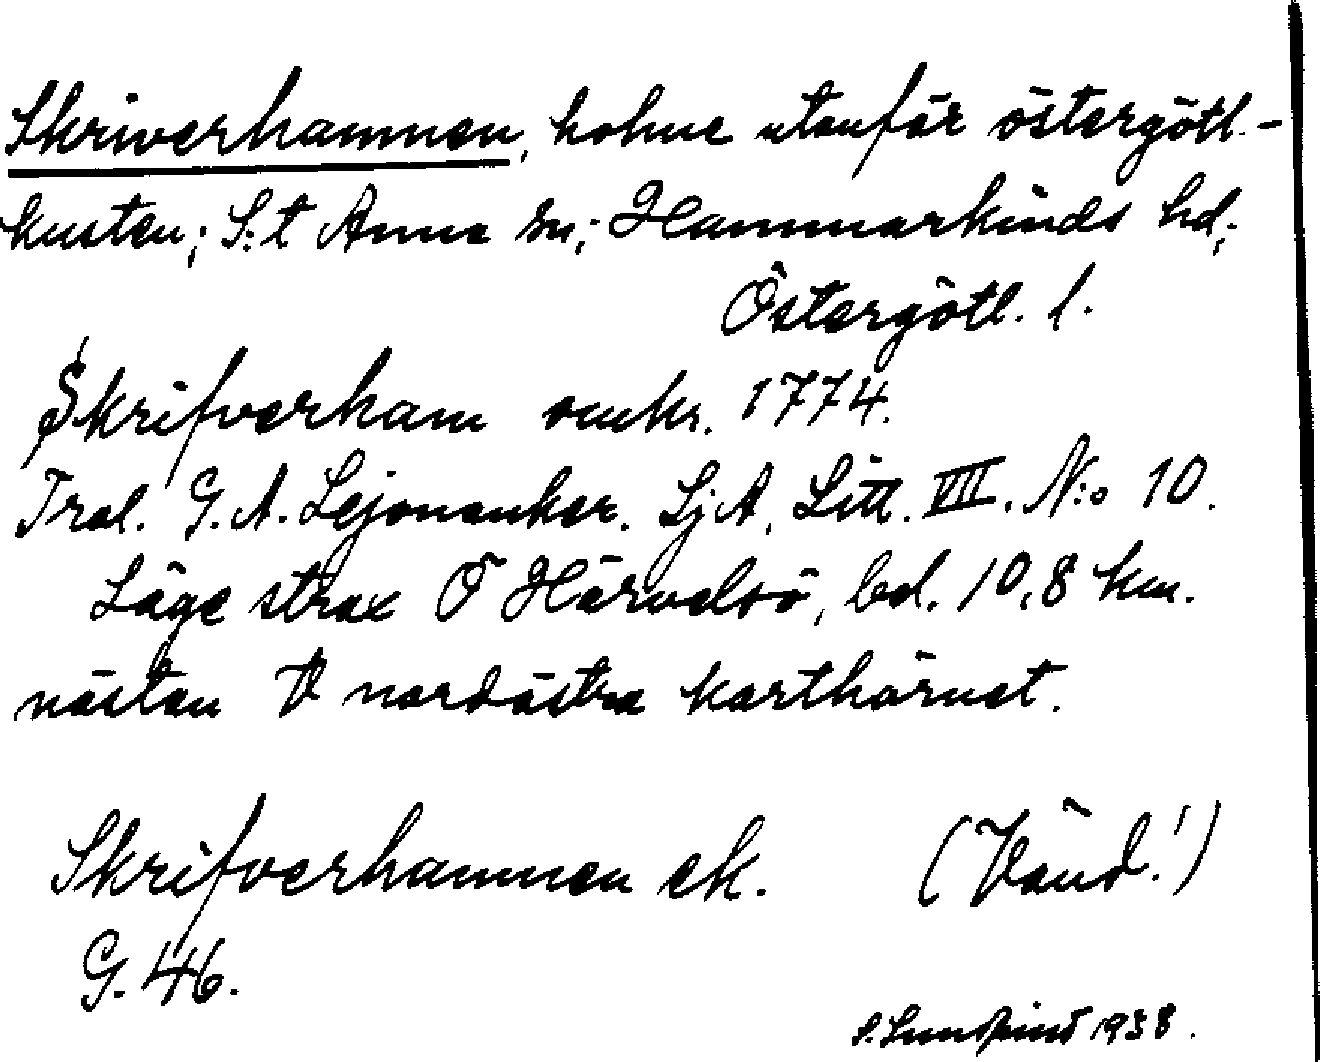 Skriverhamnen, holme utanför östergötl.-
kusten; S:t Anna sn; Hammarkinds hd;
Östergötl. l.
Skrifverham omkr. 1774.
Trol. G. A. Lejonanker. SjA, Litt. VIII. N:o 10.
Läge strax Ö Härvelsö, bd. 10,8 km.
nästan V nordöstra karthörnet.
Skrifverhamnen ek. (Vänd!)
G. 46.
S. 1938.